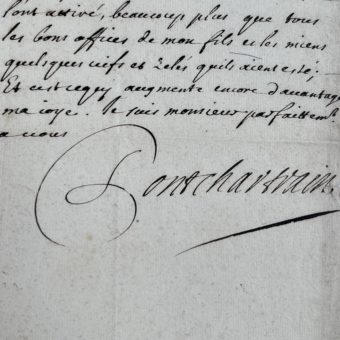 l'ont attiré, beaucoup plus que tous
les bons offices de mon fils et les miens
quelques vifs et zelés qu'ils aient esté,
Et c'est ce qui augmente encore d'avantage
ma joye. Je suis monsieur parfaittemt.
a vous
Pontchartrain